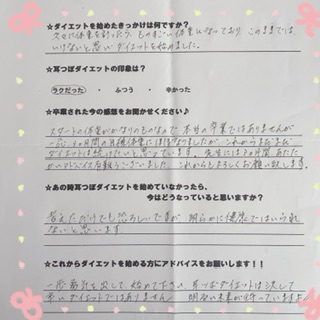 ★ダイエットを始めたきっかけは何ですか？
久々に体重を計ったら、ものすごい体重になっており このままでは
いけないと思いダイエットを始めました。
★耳つぼダイエットの印象は？
ラクだった ・ ふつう ・ 辛かった
★卒業された今の感想をお聞かせください♪
スタートの体重がかなりのものなので 本当の卒業ではありませんが
一応 ヶ月間の目標体重にほぼなりましたが、これからもまだまだ
ダイエットは続けたいと思っています。先生には 月間 あたたか
いアドバイス有難うございました。これからもよろしくお願い致します。
★あの時耳つぼダイエットを始めていなかったら、
今はどうなっていると思いますか？
考えただけでも恐ろしいですが 明らかに健康ではいられ
ないと思います
★これからダイエットを始める方にアドバイスをお願いします！！
一度勇気を出して 始めて下さい。耳つぼダイエットは決して
辛いダイエットではありません 明るい未来が待っていますよ